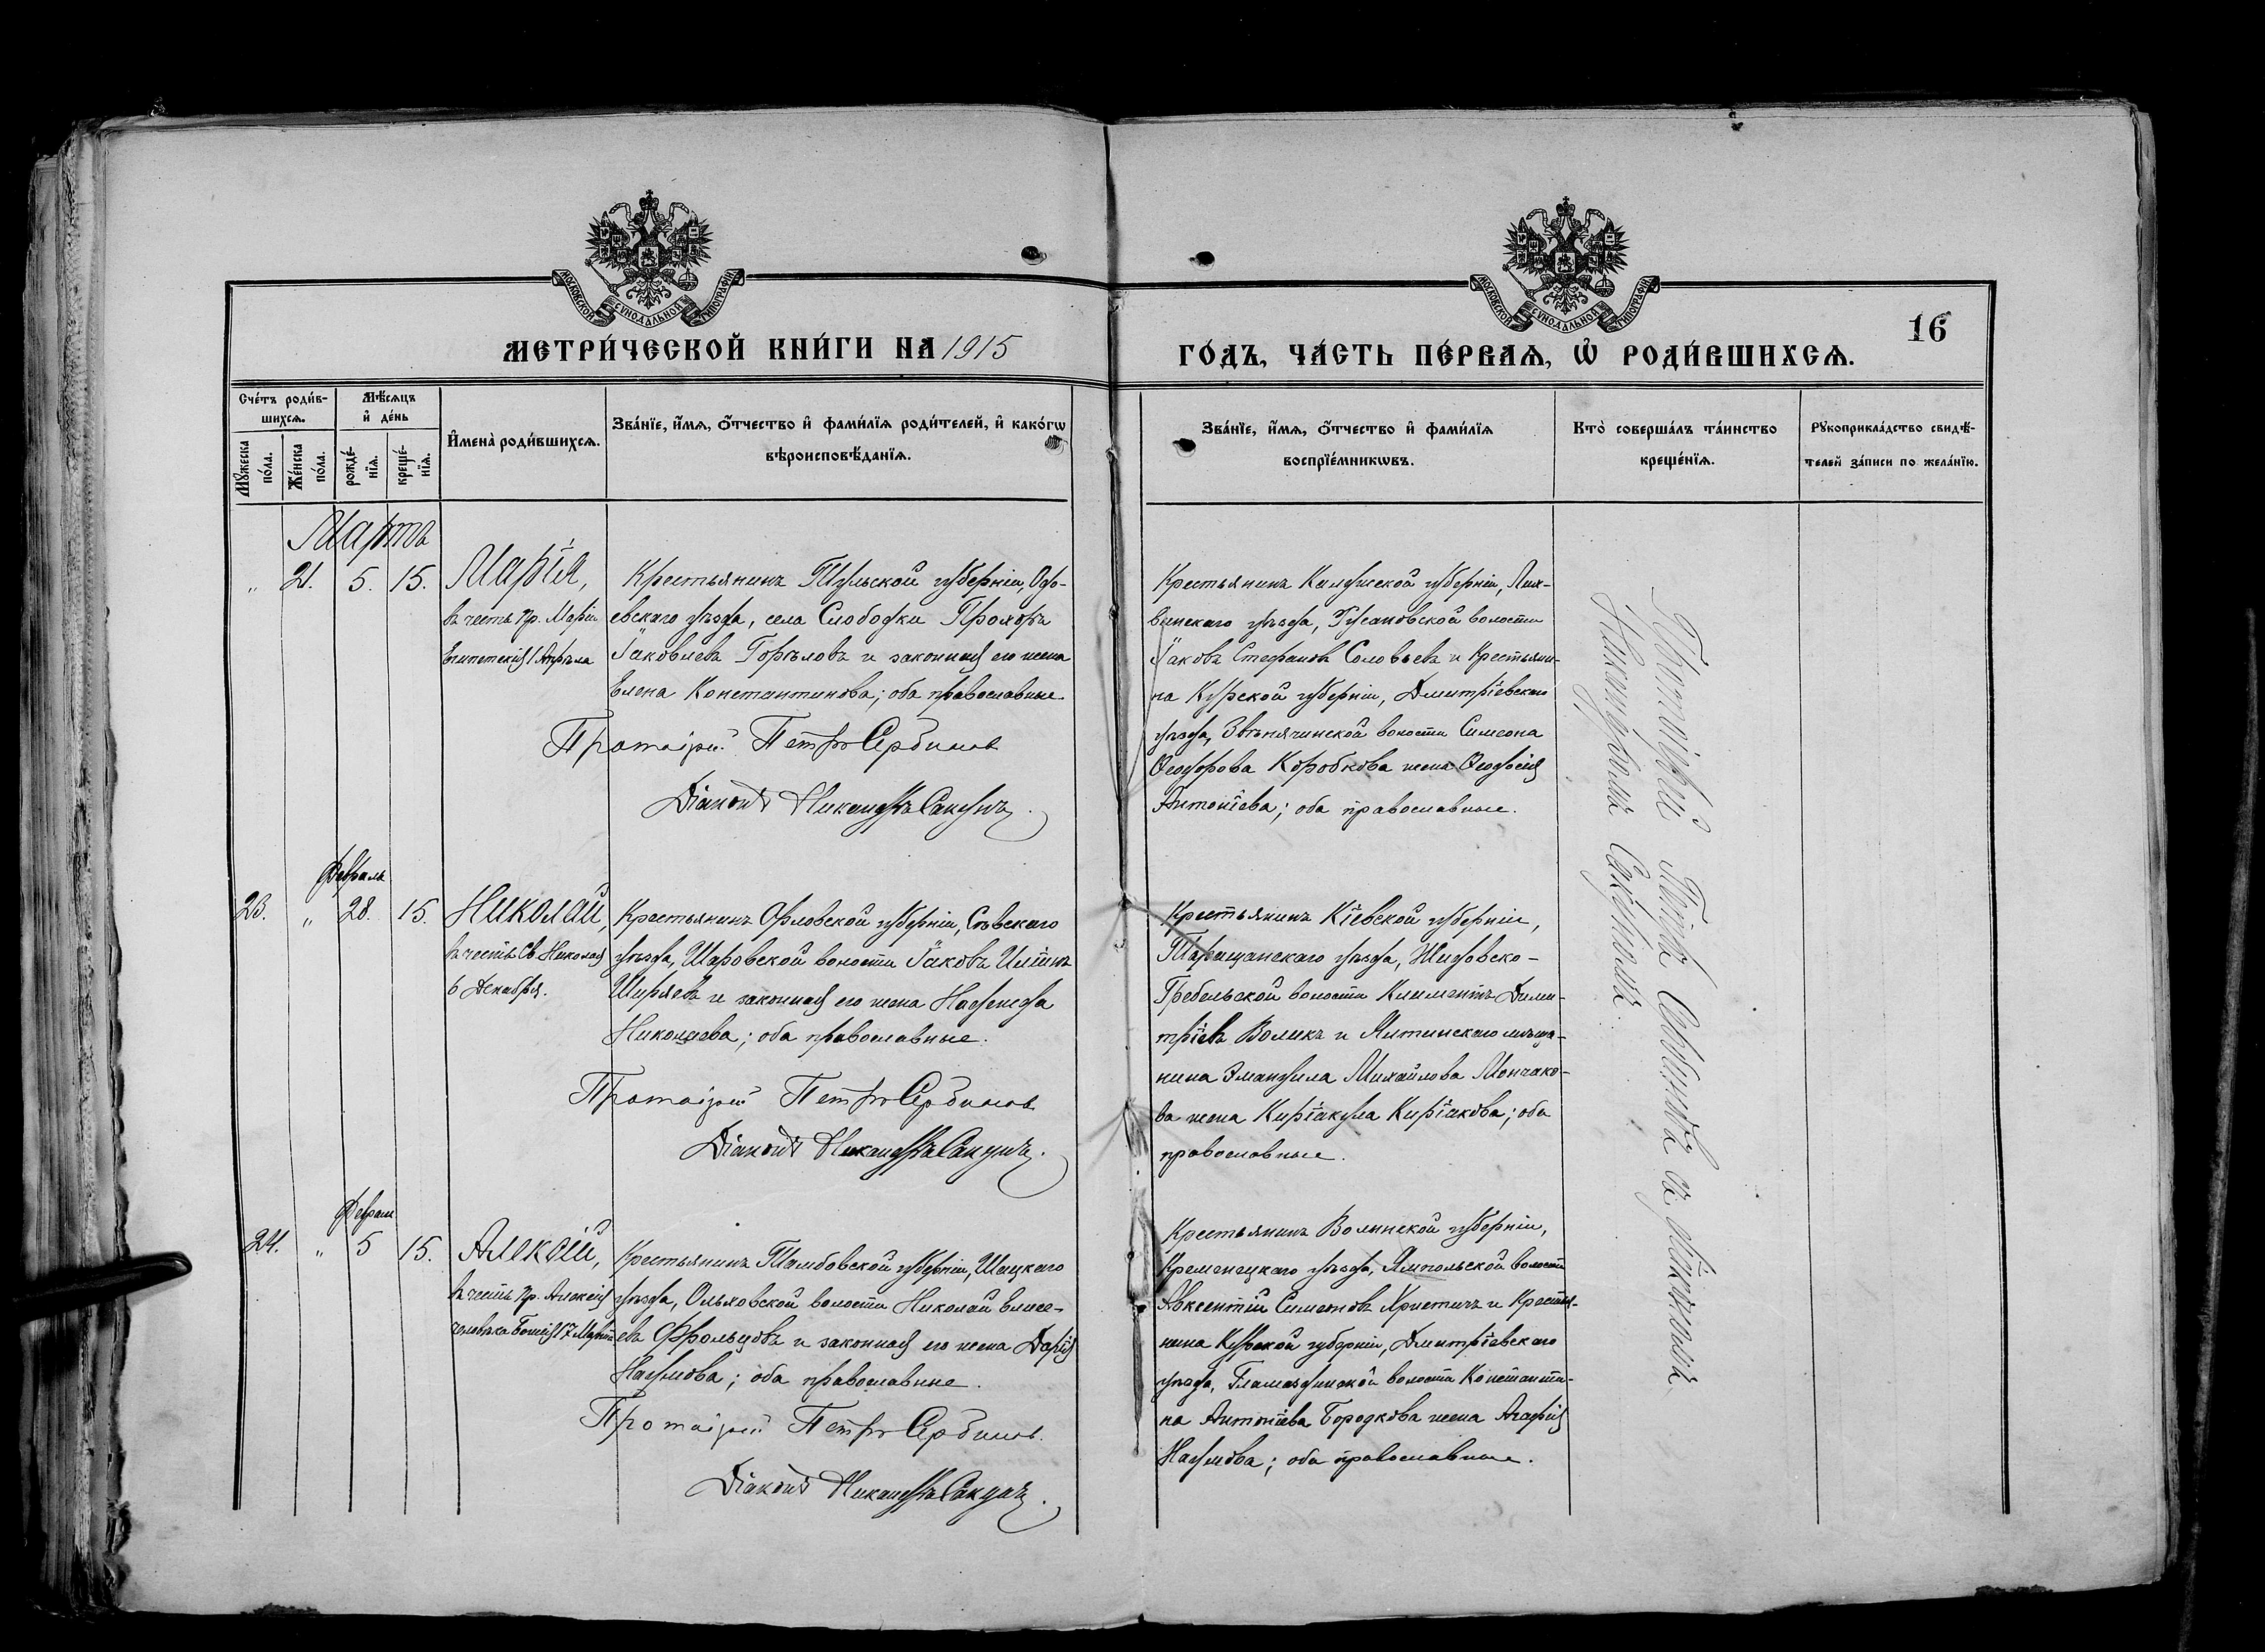 МОСКОВСКОЙ СУНОДАЛЬНОЙ ТИПОГРАФІИ
МОСКОВСКОЙ СУНОДАЛЬНОЙ ТИПОГРАФІИ
МЕТРИ́ЧЕСКОЙ КНИ́ГИ НА 1915
ГО́ДЪ, ЧА́СТЬ ПЕ́РВАѦ, Ѡ҆ РОДИ́ВШИХСѦ.
16
Сче́тъ роди́в-
шихсѧ.
Мꙋ́жеска
по́ла.
Же́нска
по́ла.
Мѣ́сѧцъ
и҆ де́нь
рожде́-
нїѧ.
креще́-
нїѧ.
И҆мена̀ роди́вшихсѧ.
Зва́нїе, и҆́мѧ, ѻ҆́тчество и҆ фами́лїѧ роди́телей, и҆ како́гѡ
вѣроисповѣ́данїѧ.
Зва́нїе, и҆́мѧ, ѻ҆́тчество и҆ фами́лїѧ
воспрїе́мникѡвъ.
Кто̀ соверша́лъ та́инство
креще́нїѧ.
Рꙋкоприкла́дство свидѣ́-
телей за́писи по жела́нїю.
Мартъ
" 21. 5. 15.
Марія,
въ честь пр. Маріи
Египетскія 1 Апрѣля
Крестьянинъ Тульской губерніи, Одо-
евскаго уѣзда, села Слободки Прохоръ
Іаковлевъ Горѣловъ и законная его жена
Елена Константинова; оба православные.
Протоіерей Петръ Сербиновъ
Діаконъ Никандръ Сакунъ.
Крестьянинъ Калужской губерніи, Лих-
винскаго уѣзда, волости
Іаковъ Стефановъ Соловьевъ и крестьяни-
на Курской губерніи, Дмитріевскаго
уѣзда, волости Симеона
Ѳеодорова Коробкова жена Ѳеодосія
Антоніева; оба православные.
Протоіерей Петръ Сербиновъ съ діакономъ
Никандромъ Сакуномъ.
Февраль
23. " 28. 15.
Николай,
въ честь Св. Николая
6 Декабря.
Крестьянинъ Орловской губерніи, Сѣвскаго
уѣзда, Шаровской волости Іаковъ Иліинъ
Ширяевъ и законная его жена Надежда
Николаева; оба православные.
Протоіерей Петръ Сербиновъ
Діаконъ Никандръ Сакунъ.
Крестьянинъ Кіевской губерніи,
Таращанскаго уѣзда, Жидовско-
Гребельской волости Климентъ Дими-
тріевъ Воликъ и Ялтинскаго мѣща-
нина Эмануила Михайлова Мончако-
ва жена Киріакула Киріакова; оба
православные.
Февраль
24. " 5 15.
Алексій,
въ честь пр. Алексія
человѣка Божія 17 Марта
Крестьянинъ Тамбовской губерніи, Шацкаго
уѣзда, Ольховской волости Николай Елисе-
евъ Фрольцовъ и законная его жена Дарія
Наумова; оба православные.
Протоіерей Петръ Сербиновъ.
Діаконъ Никандръ Сакунъ.
Крестьянинъ Волынской губерніи,
Кременецкаго уѣзда, Ямпольской волости
Авксентій Симеоновъ Христичъ и крестья-
нина Курской губерніи, Дмитріевскаго
уѣзда, волости Константи-
на Антоніева Бородкова жена Агафія
Наумова; оба православные.